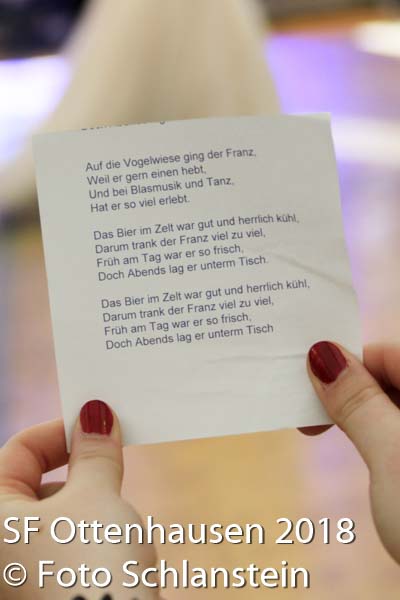 Auf die Vogelwiese ging der Franz,
Weil er gern einen hebt,
Und bei Blasmusik und Tanz,
Hat er so viel erlebt.
Das Bier im Zelt war gut und herrlich kühl,
Darum trank der Franz viel zu viel,
Früh am Tag war er so frisch,
Doch Abends lag er unterm Tisch.
Das Bier im Zelt war gut und herrlich kühl,
Darum trank der Franz viel zu viel,
Früh am Tag war er so frisch,
Doch Abends lag er unterm Tisch
SF Ottenhausen 2018
© Foto Schlanstein